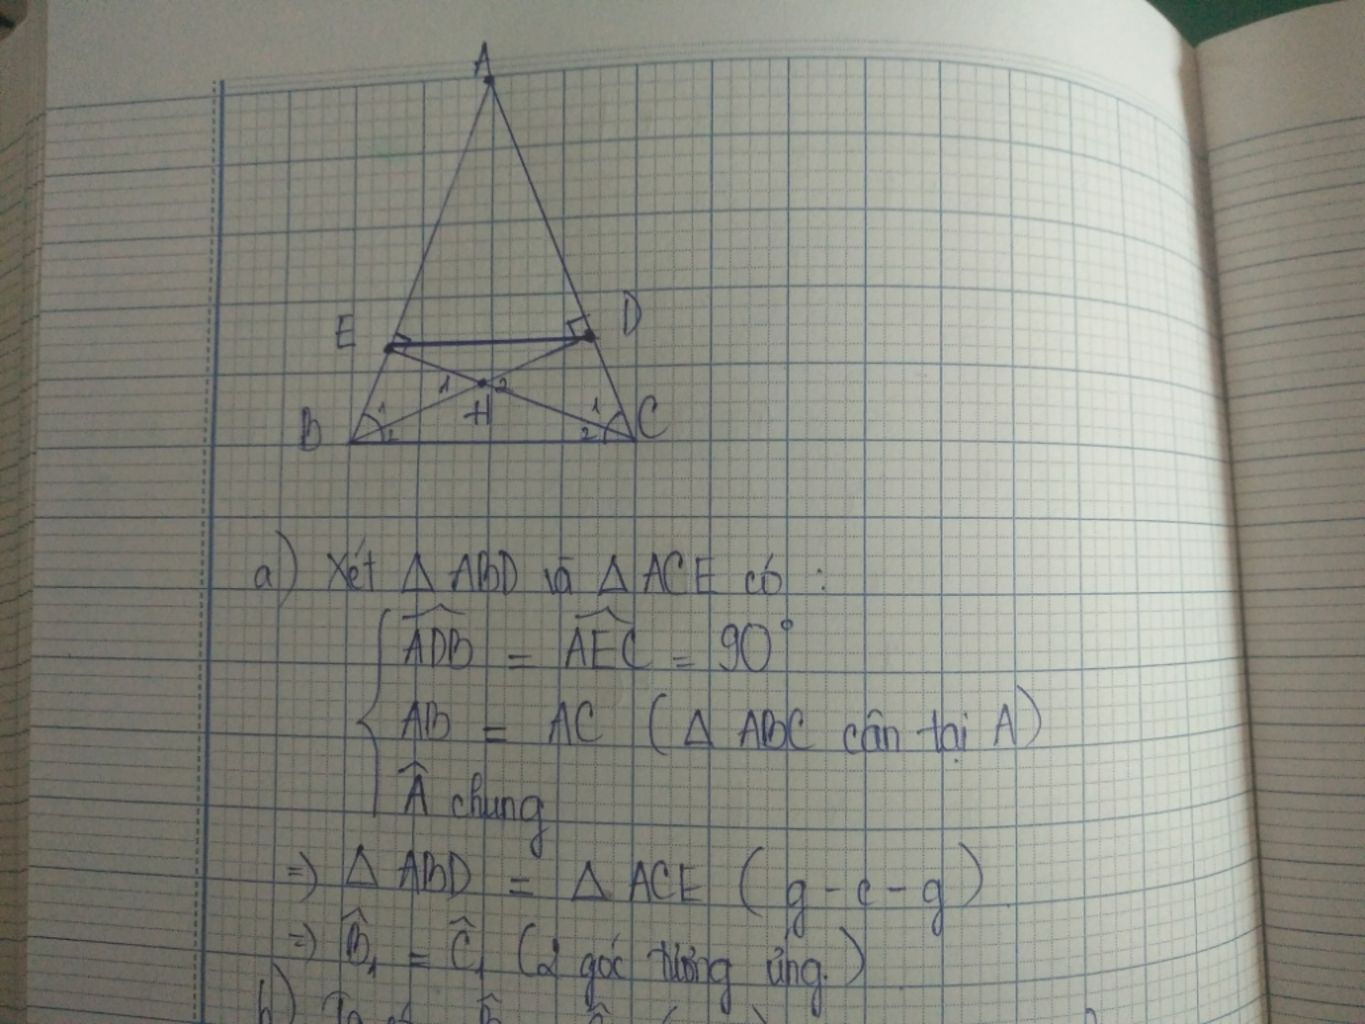 A
E
D
1
2
H
B
1
2
1
2
C
a) Xét Δ ABD và Δ ACE có :
ADB̂ = AEĈ = 90°
AB = AC (Δ ABC cân tại A)
Â chung
=> Δ ABD = Δ ACE (g-c-g)
=> B̂₁ = Ĉ₁ (2 góc tương ứng.)
b) Ta có